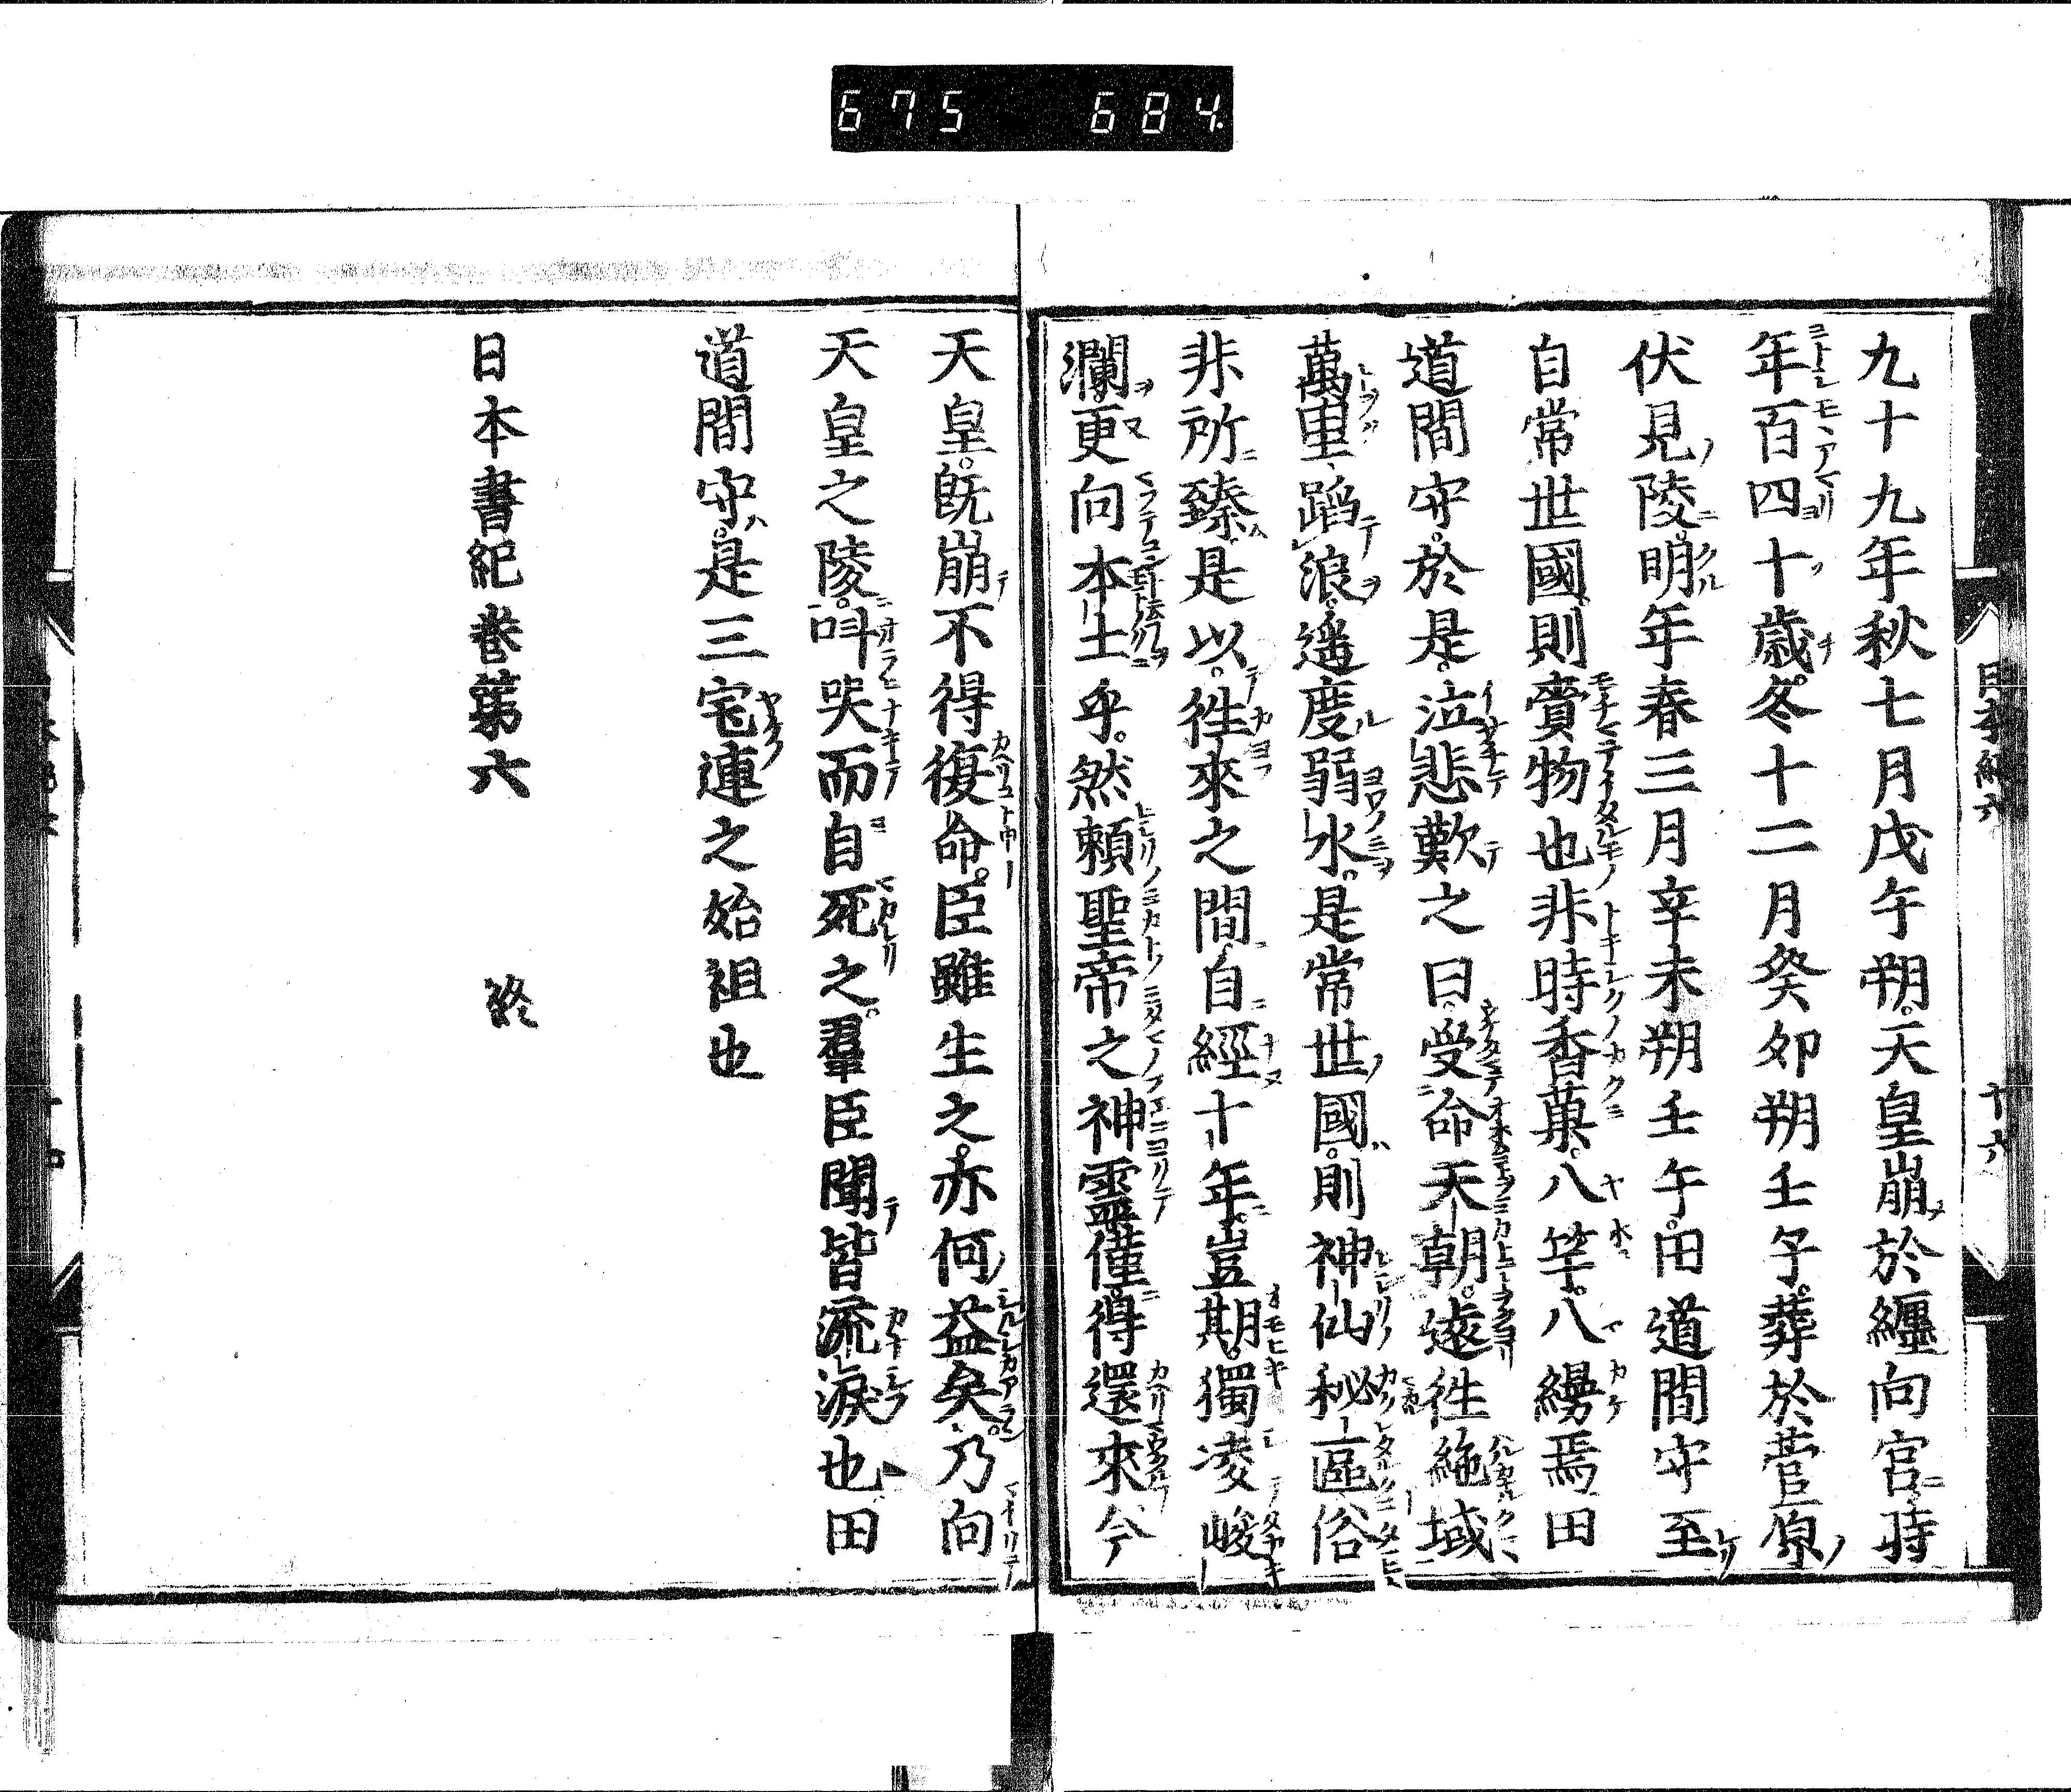 675 684.
日本紀六
十六
九十九年秋七月戊午朔。天皇崩於纏向宮時
年百四十歳。冬十二月癸卯朔壬子。葬於菅原
伏見陵。明年春三月辛未朔壬午。田道間守至
自常世國則賷物也非時香菓。八竿。八縵焉田
道間守。於是。泣悲歎之曰。受命天朝。遠徃絶域
萬里蹈浪。遥度弱水。是常世國。則神仙秘區俗
非所臻。是以。徃來之間自經十年。豈期。獨凌峻
瀾更向本土乎。然頼聖帝之神靈僅得還來今
天皇。既崩不得復命。臣雖生之。亦何益矣。乃向
天皇之陵。叫哭而自死之。羣臣聞皆流涙也田
道間守。是三宅連之始祖也
日本書紀巻第六 終